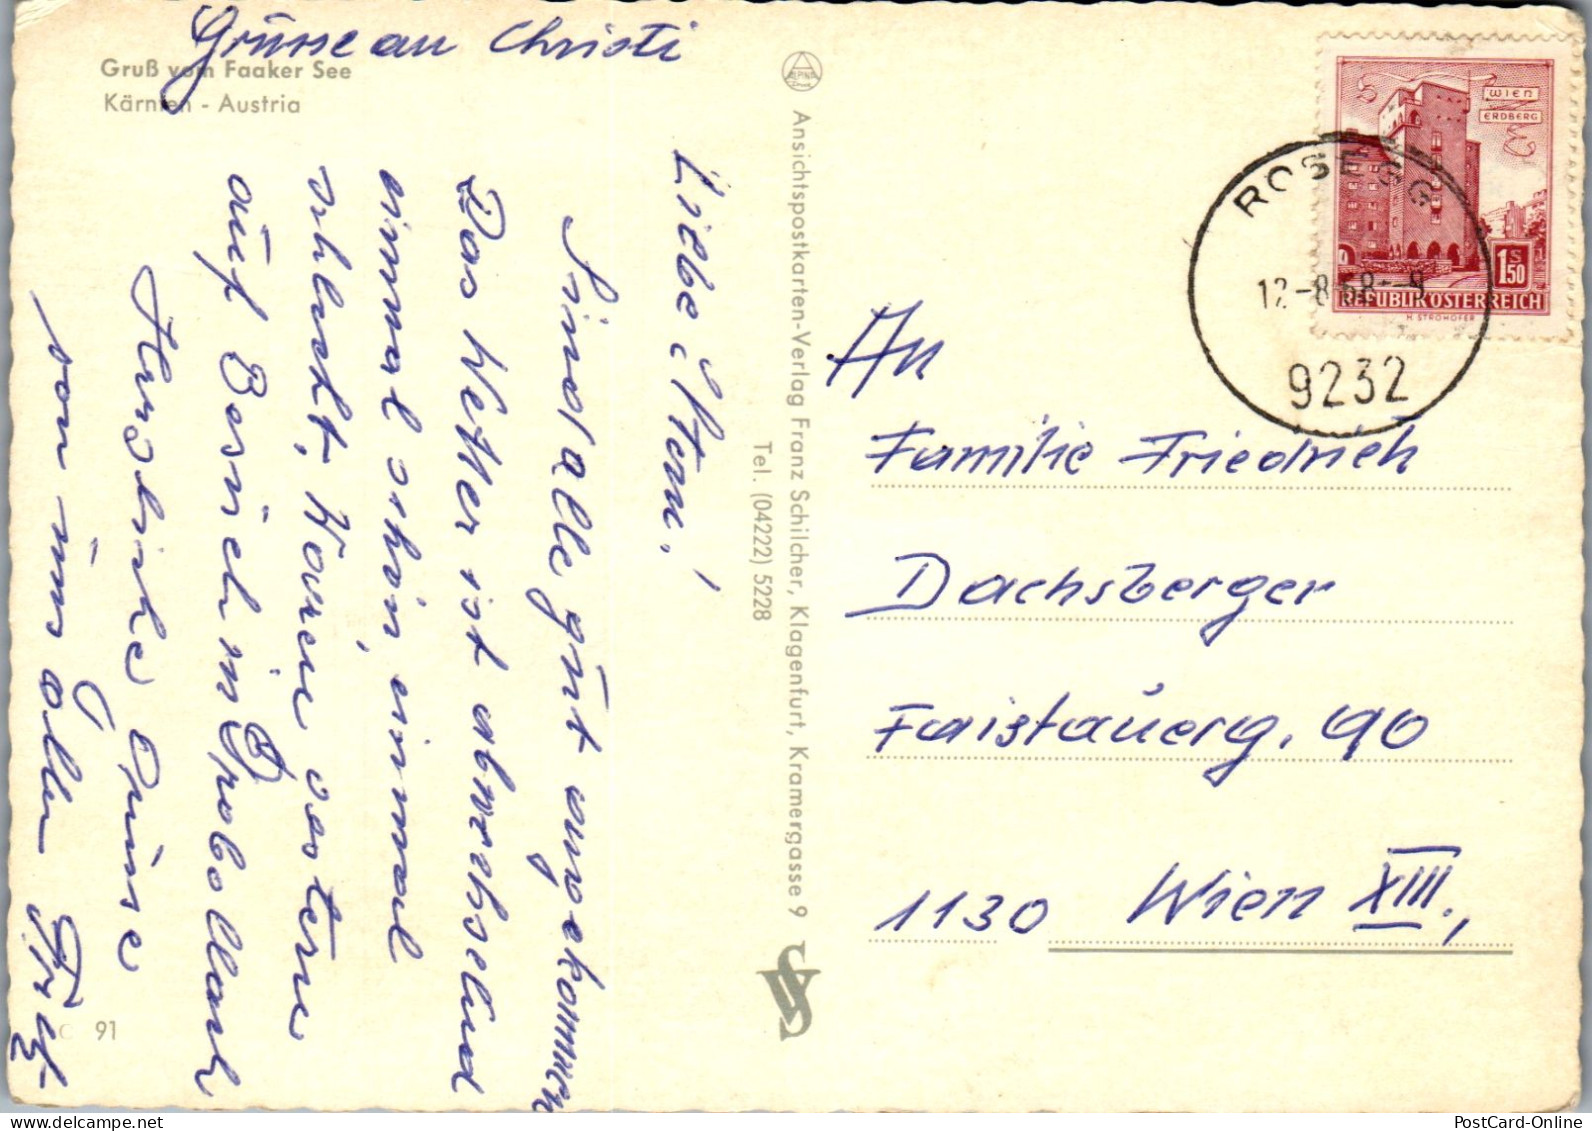 Grüsse an Christi
Gruß vom Faaker See
Kärnten - Austria
Liebe Eltern!
Sind alle gut angekommen
Das Wetter ist abwechselnd
einmal schön, einmal
schlecht. Waren gestern
auf Besuch in Probollach
Herzliche Grüsse
von uns allen Fritz
C 91
ALPINA
Ansichtspostkarten-Verlag Franz Schilcher, Klagenfurt, Kramergasse 9
Tel. (04222) 5228
WIEN
ERDBERG
1 S 50
REPUBLIK ÖSTERREICH
H. STROHOFER
ROSEGG
12-8-68--9
9232
An
Familie Friedrich
Dachsberger
Faistauerg. 90
1130 Wien XIII.,
PostCard-Online